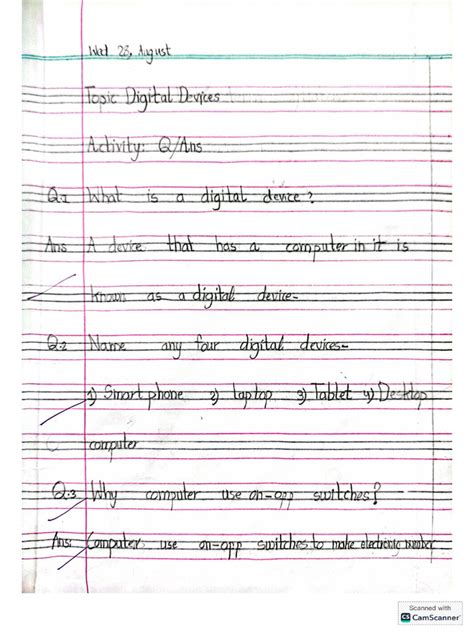 Wed 28, August
Topic Digital Devices
Activity: Q/Ans
Q.1 What is a digital device?
Ans A device that has a computer in it is
known as a digital device-
Q.2 Name any four digital devices-
1) Smart phone 2) laptop 3) Tablet 4) Desktop
computer
Q.3 Why computer use on-opp switches?
Ans: Computer use on-opp switches to make electronic number
Scanned with
CS CamScanner